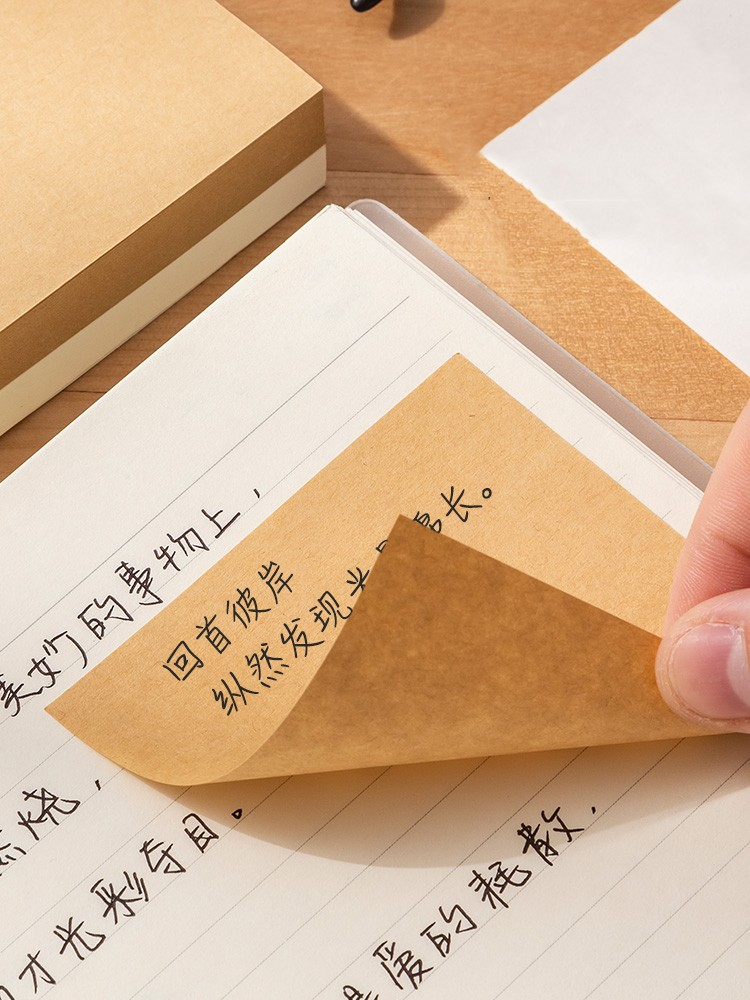 美妙的事物上，
回首彼岸
纵然发现光景绵长。
燃烧，
才光彩夺目。
是爱的耗散，